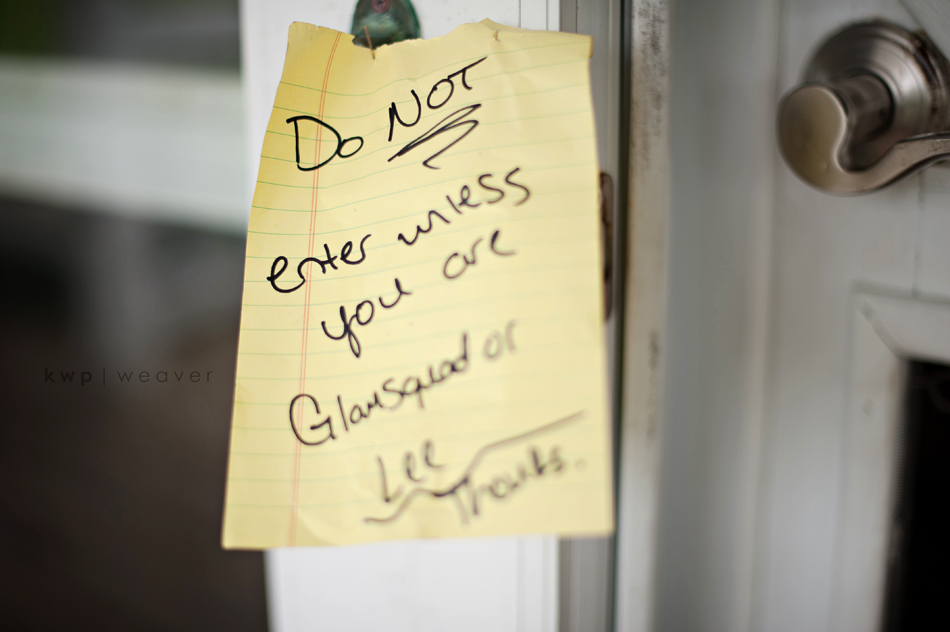 Do NOT
enter unless
you are
Glamsquad or
Lee
Thanks.
kwp | weaver